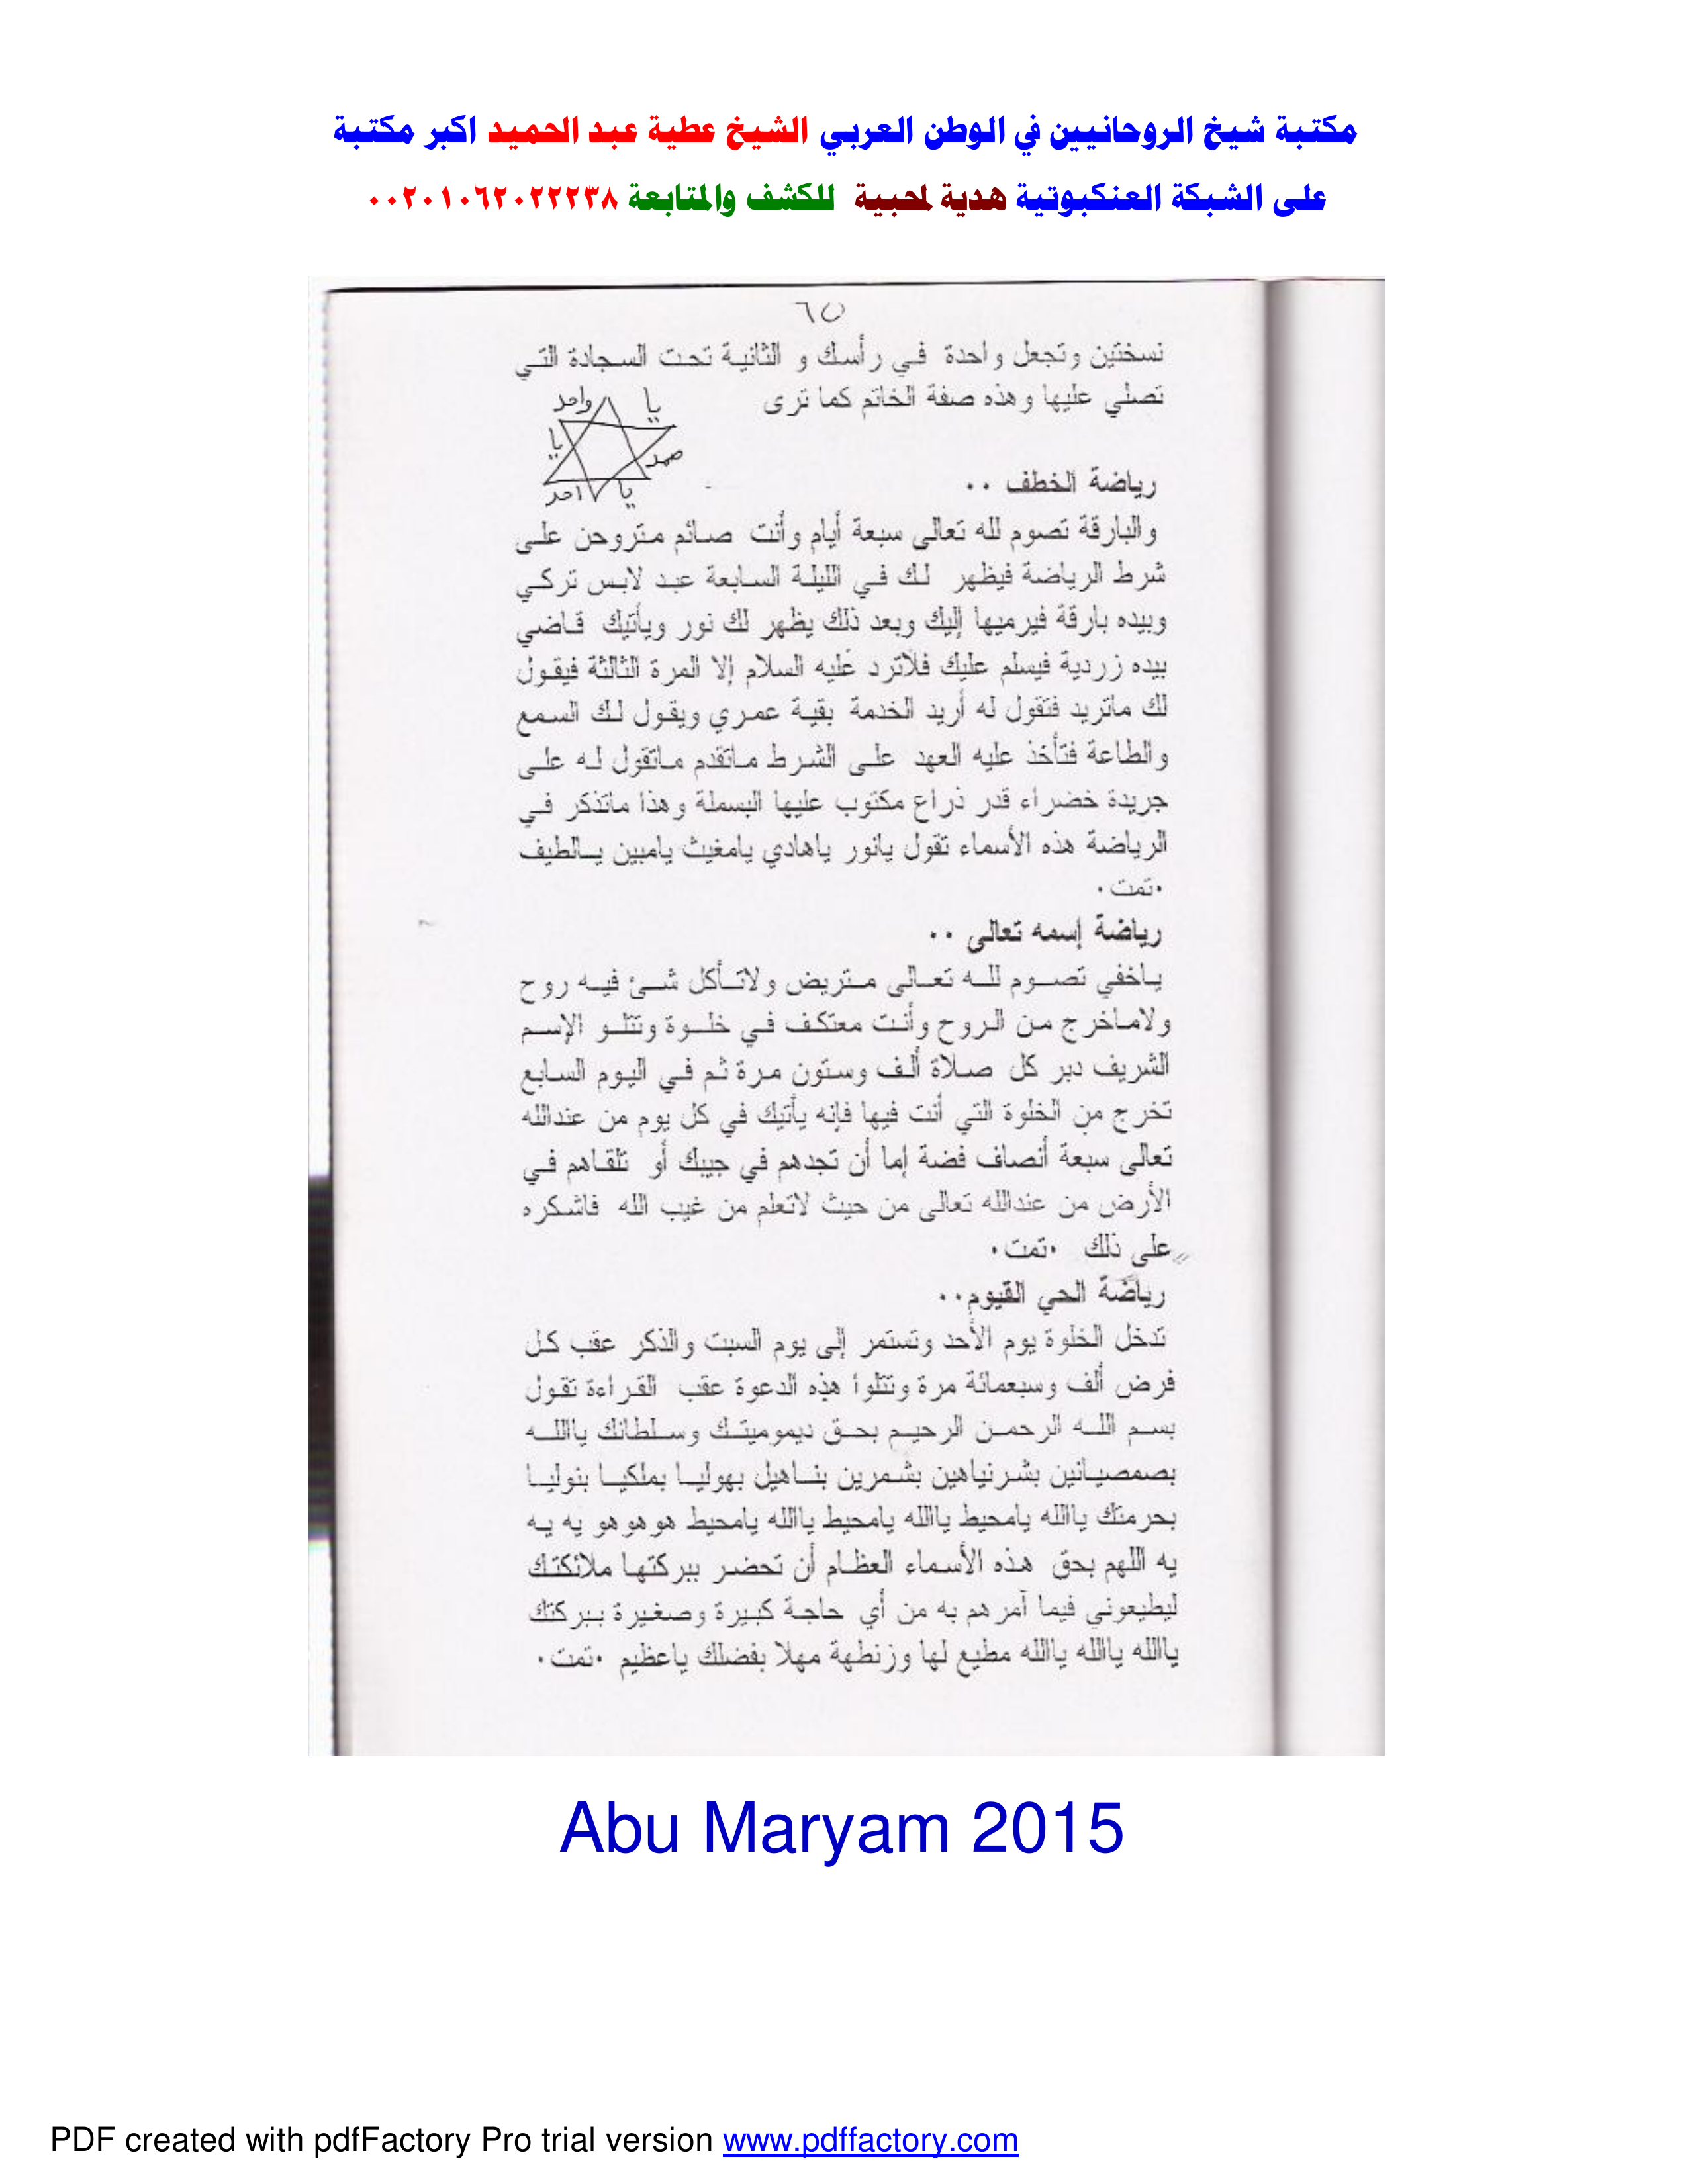 مكتبة شيخ الروحانيين في الوطن العربي الشيخ عطية عبد الحميد اكبر مكتبة
على الشبكة العنكبوتية هدية لمحبية للكشف والمتابعة ٠٠٢٠١٠٦٢٠٢٢٢٣٨
٦٥
نسختين وتجعل واحدة في رأسك و الثانية تحت السجادة التي
تصلي عليها وهذه صفة الخاتم كما ترى
يا واحد
يا صمد
يا احد
رياضة الخطف ..
والبارقة تصوم لله تعالى سبعة أيام وأنت صائم متروحن على
شرط الرياضة فيظهر لك في الليلة السابعة عبد لابس تركي
وبيده بارقة فيرميها إليك وبعد ذلك يظهر لك نور ويأتيك قاضي
بيده زردية فيسلم عليك فلاترد عليه السلام إلا المرة الثالثة فيقول
لك ماتريد فتقول له أريد الخدمة بقية عمري ويقول لك السمع
والطاعة فتأخذ عليه العهد على الشرط ماتقدم ماتقول له على
جريدة خضراء قدر ذراع مكتوب عليها البسملة وهذا ماتذكر في
الرياضة هذه الأسماء تقول يانور ياهادي يامغيث يامبين يالطيف
.تمت.
رياضة إسمه تعالى ..
ياخفي تصوم لله تعالى متريض ولاتأكل شئ فيه روح
ولاماخرج من الروح وأنت معتكف في خلوة وتتلو الإسم
الشريف دبر كل صلاة ألف وستون مرة ثم في اليوم السابع
تخرج من الخلوة التي أنت فيها فإنه يأتيك في كل يوم من عندالله
تعالى سبعة أنصاف فضة إما أن تجدهم في جيبك أو تلقاهم في
الأرض من عندالله تعالى من حيث لاتعلم من غيب الله فاشكره
على ذلك .تمت.
رياضة الحي القيوم..
تدخل الخلوة يوم الأحد وتستمر إلى يوم السبت والذكر عقب كل
فرض ألف وسبعمائة مرة وتتلوا هذه الدعوة عقب القراءة تقول
بسم الله الرحمن الرحيم بحق ديموميتك وسلطانك ياالله
بصمصيانين بشرنياهين بشمرين بناهيل بهوليا بملكيا بنوليا
بحرمتك ياالله يامحيط ياالله يامحيط ياالله يامحيط هوهوهو يه يه
يه اللهم بحق هذه الأسماء العظام أن تحضر ببركتها ملائكتك
ليطيعوني فيما آمرهم به من أي حاجة كبيرة وصغيرة ببركتك
ياالله ياالله ياالله مطيع لها وزنطهة مهلا بفضلك ياعظيم .تمت.
Abu Maryam 2015
PDF created with pdfFactory Pro trial version www.pdffactory.com